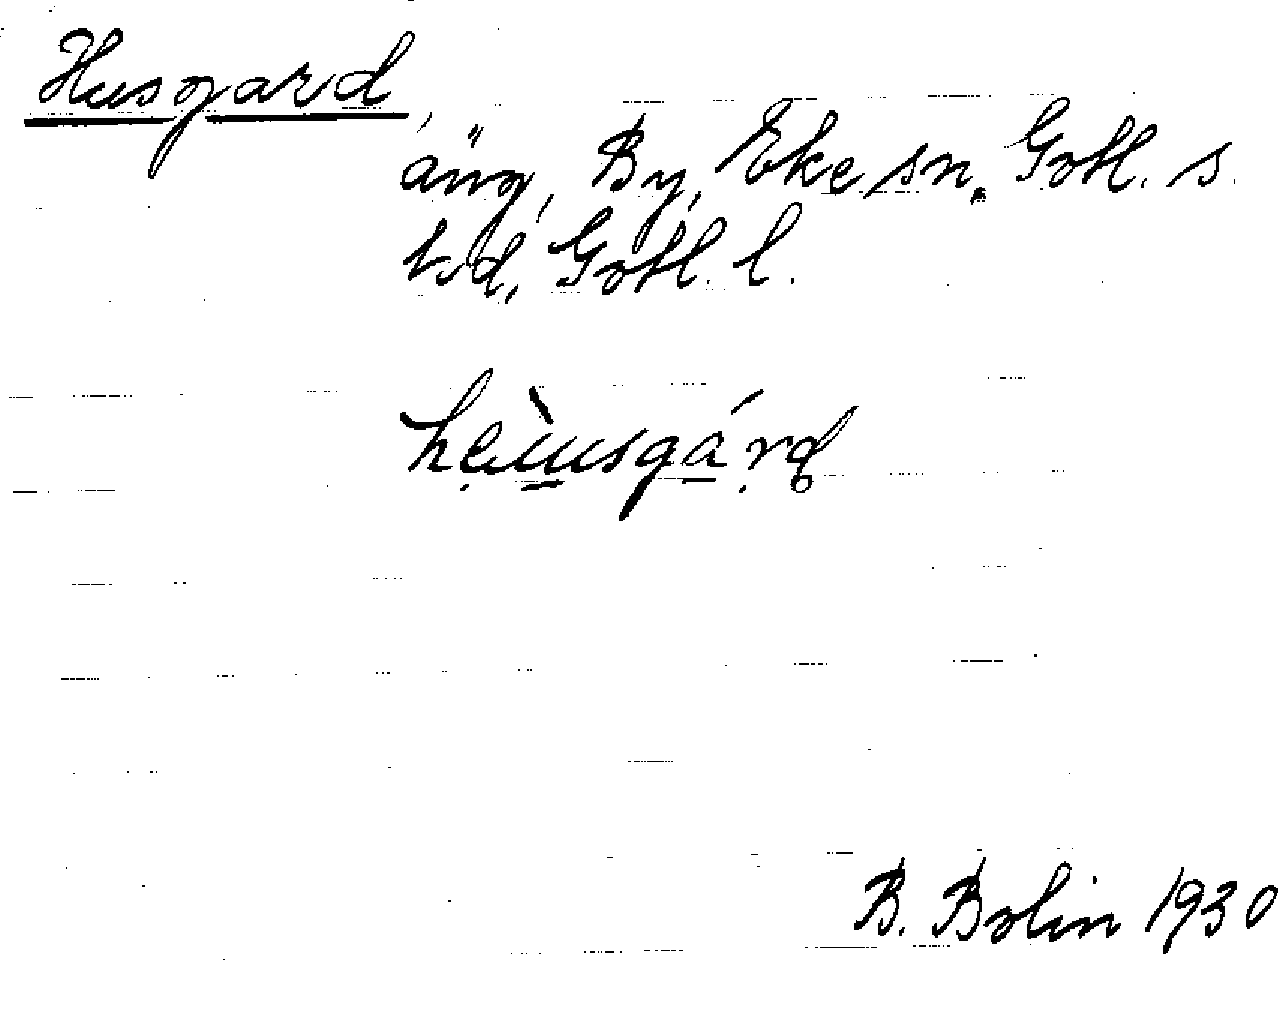 Husgard,
äng, By, Eke sn. Gotl. s.
hd, Gotl. l.
B. Bolin 1930